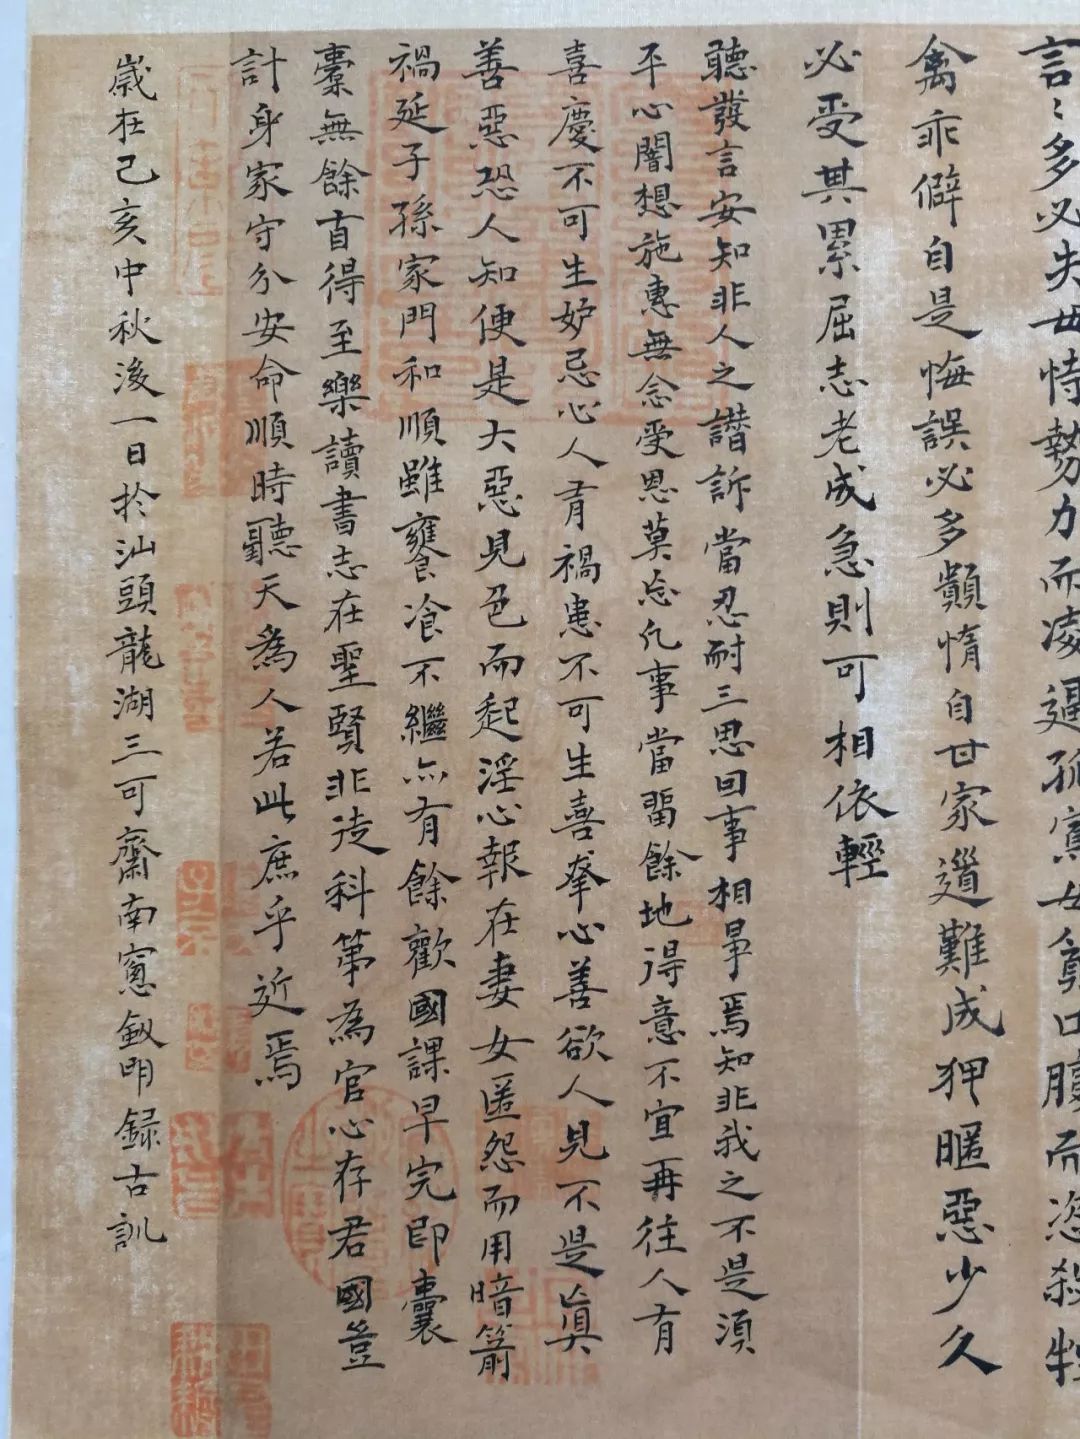 言〻多必失毋恃勢力而凌逼孤寡毋貪口腹而恣殺牲
禽乖僻自是悔誤必多頹惰自甘家道難成狎暱惡少久
必受其累屈志老成急則可相依輕
聽發言安知非人之譖訴當忍耐三思因事相爭焉知非我之不是須
平心闇想施惠無念受恩莫忘凡事當留餘地得意不宜再往人有
喜慶不可生妒忌心人有禍患不可生喜幸心善欲人見不是真
善惡恐人知便是大惡見色而起淫心報在妻女匿怨而用暗箭
禍延子孫家門和順雖饔飧不繼亦有餘歡國課早完即囊
橐無餘自得至樂讀書志在聖賢非徒科第為官心存君國豈
計身家守分安命順時聽天為人若此庶乎近焉
歲在己亥中秋後一日於汕頭龍湖三可齋南窗劍明録古訓